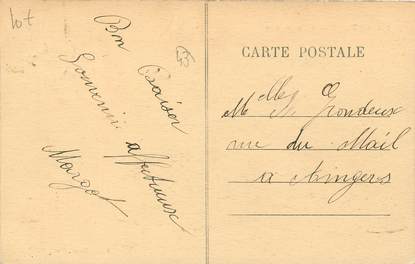 lot
Bon Baiser
Souvenir affectueux
Margot
CARTE POSTALE
Melles Grondeux
rue du Mail
à Angers